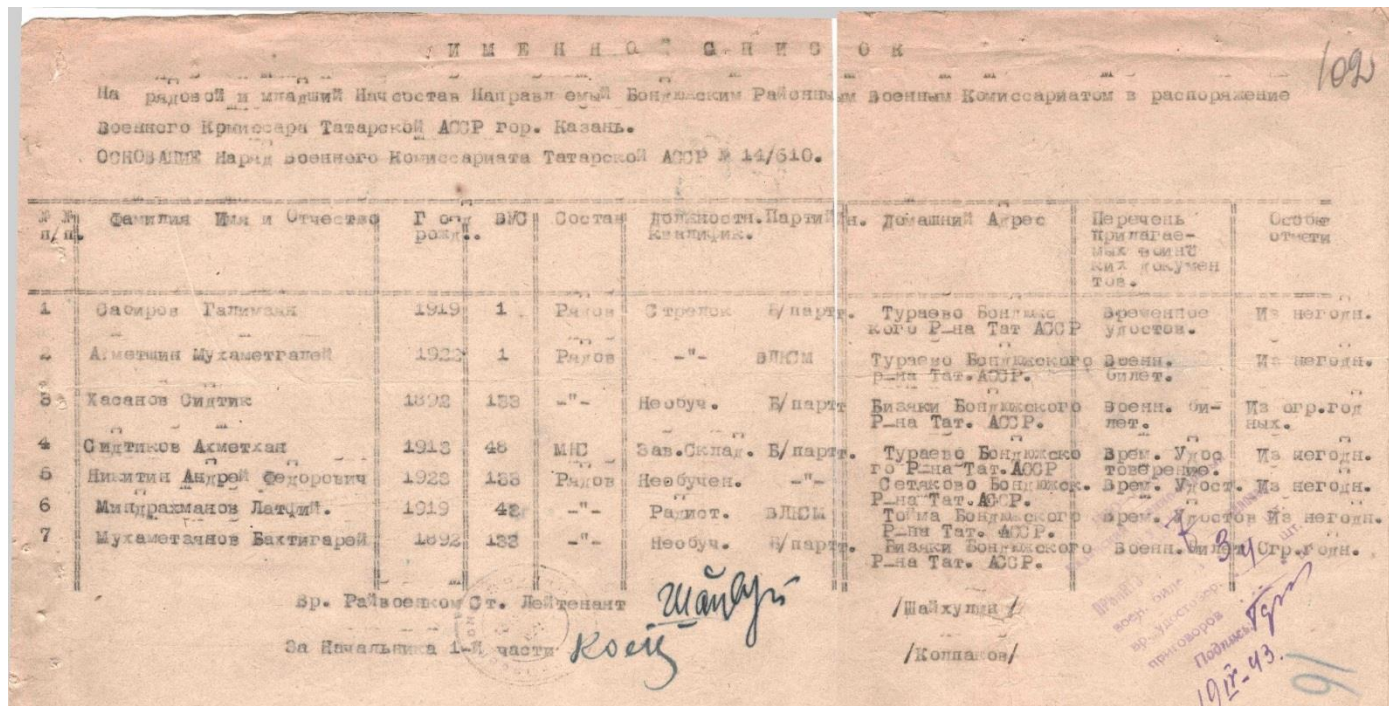 ИМЕННОЙ СПИСОК
102
На рядовой и младший Начсостав Направляемый Бондюжским Районным Военным Комиссариатом в распоряжение
Военного Комиссара Татарской АССР гор. Казань.
ОСНОВАНИЕ Наряд Военного Комиссариата Татарской АССР № 14/610.
№ № п/п. Фамилия Имя и Отчество Год рожд.. ВУС Состав Должностн. Квалифик. Партийн. Домашний Адрес Перечень прилагаемых воинских документов. Особые отмети
1 Сабиров Галимзян 1919 1 Рядов Стрелок Б/партт. Тураево Бондюжс
кого Р-на Тат АССР Временное удостов. Из негодн.
2 Ахметшин Мухаметгалей 1922 1 Рядов -"- ВЛКСМ Тураево Бондюжского
Р-на Тат.АССР. Воен. билет. Из негодн.
3 Хасанов Сидтик 1892 133 -"- Необуч. Б/партт Бизяки Бондюжского
Р-на Тат. АССР. Военн. би-
лет. Из огр.год
ных.
4 Сидтиков Ахметхан 1913 48 МНС Зав.Склад. Б/партт. Тураево Бондюжско
го Р-на Тат.АССР Врем. Удос
товерение. Из негодн.
5 Никитин Андрей Федорович 1923 133 Рядов Необучен. -"- Сетяково Бондюжск.
Р-на Тат.АССР. Врем. Удост. Из негодн.
6 Миндрахманов Латфий. 1919 48 -"- Радист. ВЛКСМ Тойма Бондюжского
Р-на Тат. АССР. Врем. Удостов Из негодн.
7 Мухаметзянов Бахтигарей 1892 133 -"- Необуч. Б/партт. Бизяки Бондюжского
Р-на Тат. АССР. Военн.билет Огр.годн.
Вр. Райвоенком Ст. Лейтенант /Шайхулин/
За Начальника 1-й части /Колпаков/
воен. биле
3
вр. удостовер.
4 шт.
приговоров
Подпись
19 IV-43.
91